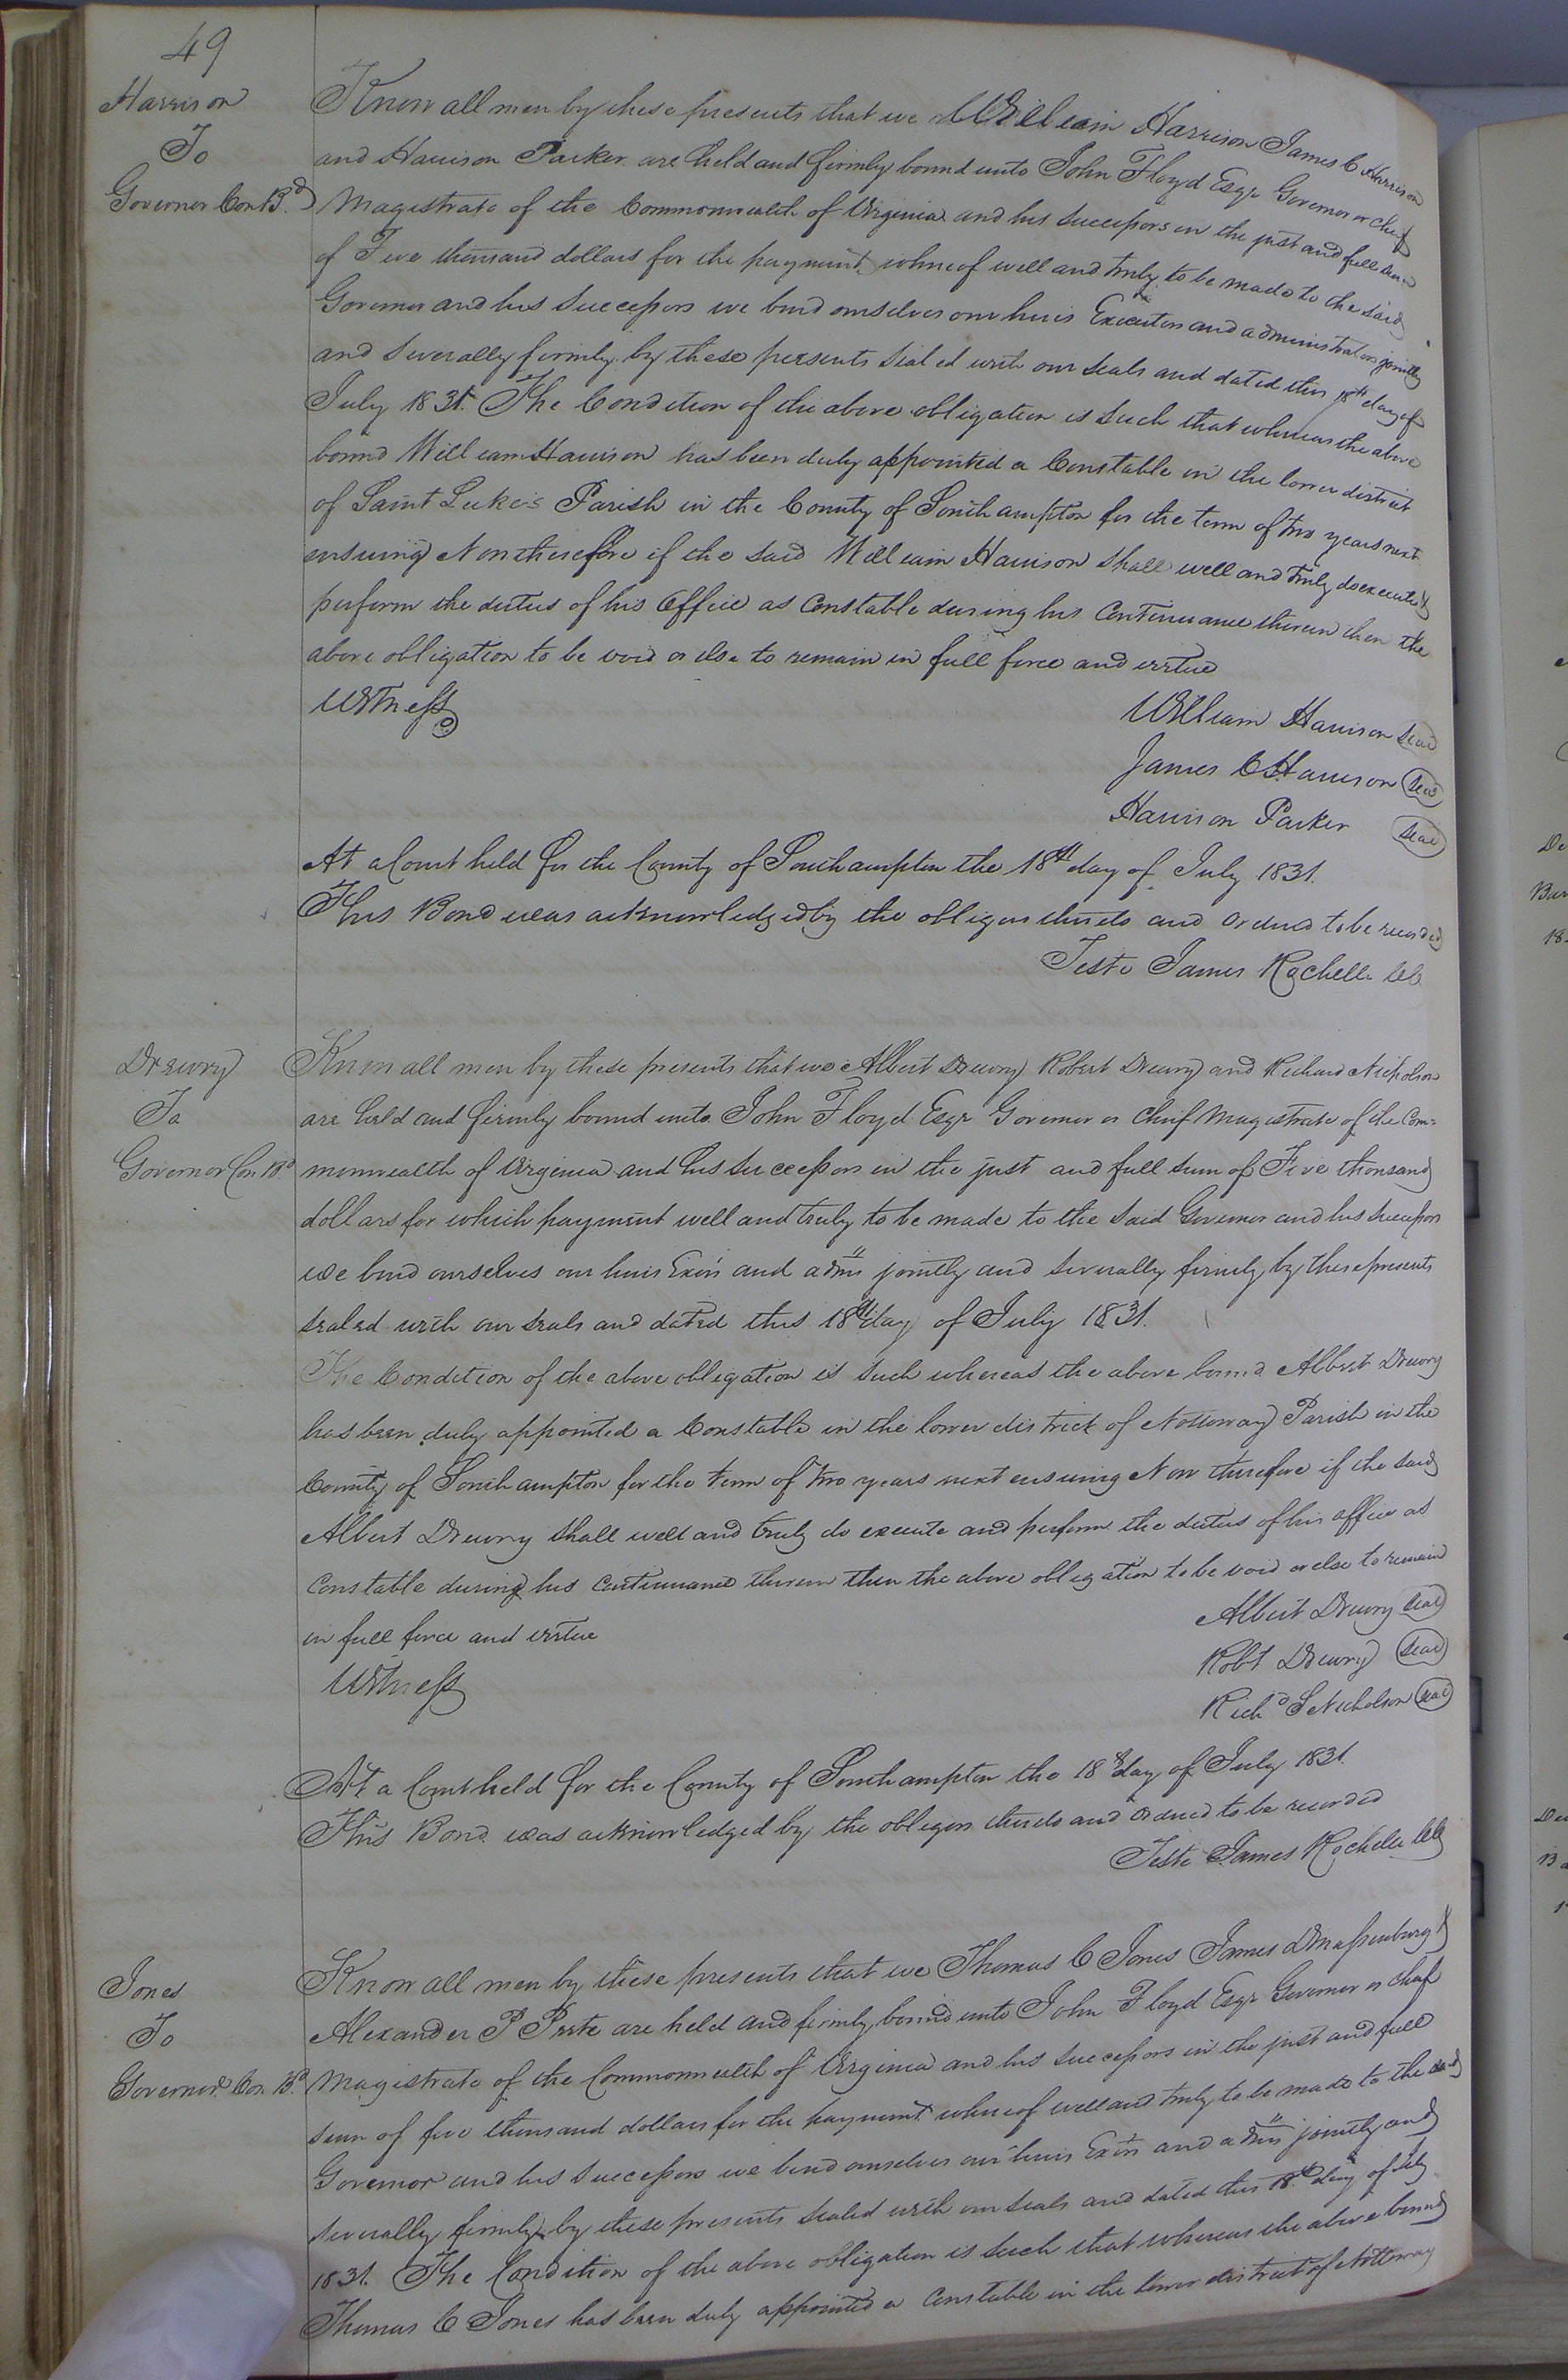 49
Harrison
To
Governor Con Bd
Know all men by these presents that we William Harrison James C Harrison
and Harrison Parker are held and firmly bound unto John Floyd Esqr Governor or chief
Magistrate of the Commonwealth of Virginia and his Successors in the just and full sum
of Five thousand dollars for the payment whereof well and truly to be made to the said
Governor and his Successors we bind ourselves our heirs Executors and administrators jointly
and severally firmly by these presents sealed with our seals and dated this 18th day of
July 1831. The Condition of the above obligation is such that whereas the above
bound William Harrison has been duly appointed a Constable in the lower district
of Saint Luke's Parish in the County of Southampton for the term of two years next
ensuing Now therefore if the said William Harrison shall well and truly do execute &
perform the duties of his Office as Constable during his Continuance therein then the
above obligation to be void or else to remain in full force and virtue
Witness
William Harrison seal
James C Harrison seal
Harrison Parker seal
At a Court held for the County of Southampton the 18th day of July 1831.
This Bond was acknowledged by the obligors thereto and ordered to be recorded
Teste James Rochelle Clk
Drewry
To
Governor Con Bd
Know all men by these presents that we Albert Drewry Robert Drewry and Richard Nicholson
are held and firmly bound unto John Floyd Esqr Governor or Chief Magistrate of the Com=
monwealth of Virginia and his Successors in the just and full sum of Five thousand
dollars for which payment well and truly to be made to the said Governor and his Successors
we bind ourselves our heirs Exors and adms jointly and severally firmly by these presents
sealed with our seals and dated this 18th day of July 1831.
The Condition of the above obligation is such whereas the above bound Albert Drewry
has been duly appointed a Constable in the lower district of Nottoway Parish in the
County of Southampton for the term of two years next ensuing Now therefore if the said
Albert Drewry shall well and truly do execute and perform the duties of his office as
Constable during his continuance therein then the above obligation to be void or else to remain
in full force and virtue
Witness
Albert Drewry seal
Robt Drewry seal
Richd S Nicholson seal
At a Court held for the County of Southampton the 18th day of July 1831.
This Bond was acknowledged by the obligors thereto and ordered to be recorded
Teste James Rochelle Clk
Jones
To
Governor Con Bd
Know all men by these presents that we Thomas C Jones James D Massenburg &
Alexander P Peete are held and firmly bound unto John Floyd Esqr Governor or chief
Magistrate of the Commonwealth of Virginia and his Successors in the just and full
sum of five thousand dollars for the payment whereof well and truly to be made to the said
Governor and his Successors we bind ourselves our heirs Exors and adms jointly and
severally firmly by these presents sealed with our seals and dated this 18th day of July
1831. The Condition of the above obligation is such that whereas the above bound
Thomas C Jones has been duly appointed a Constable in the lower district of Nottoway